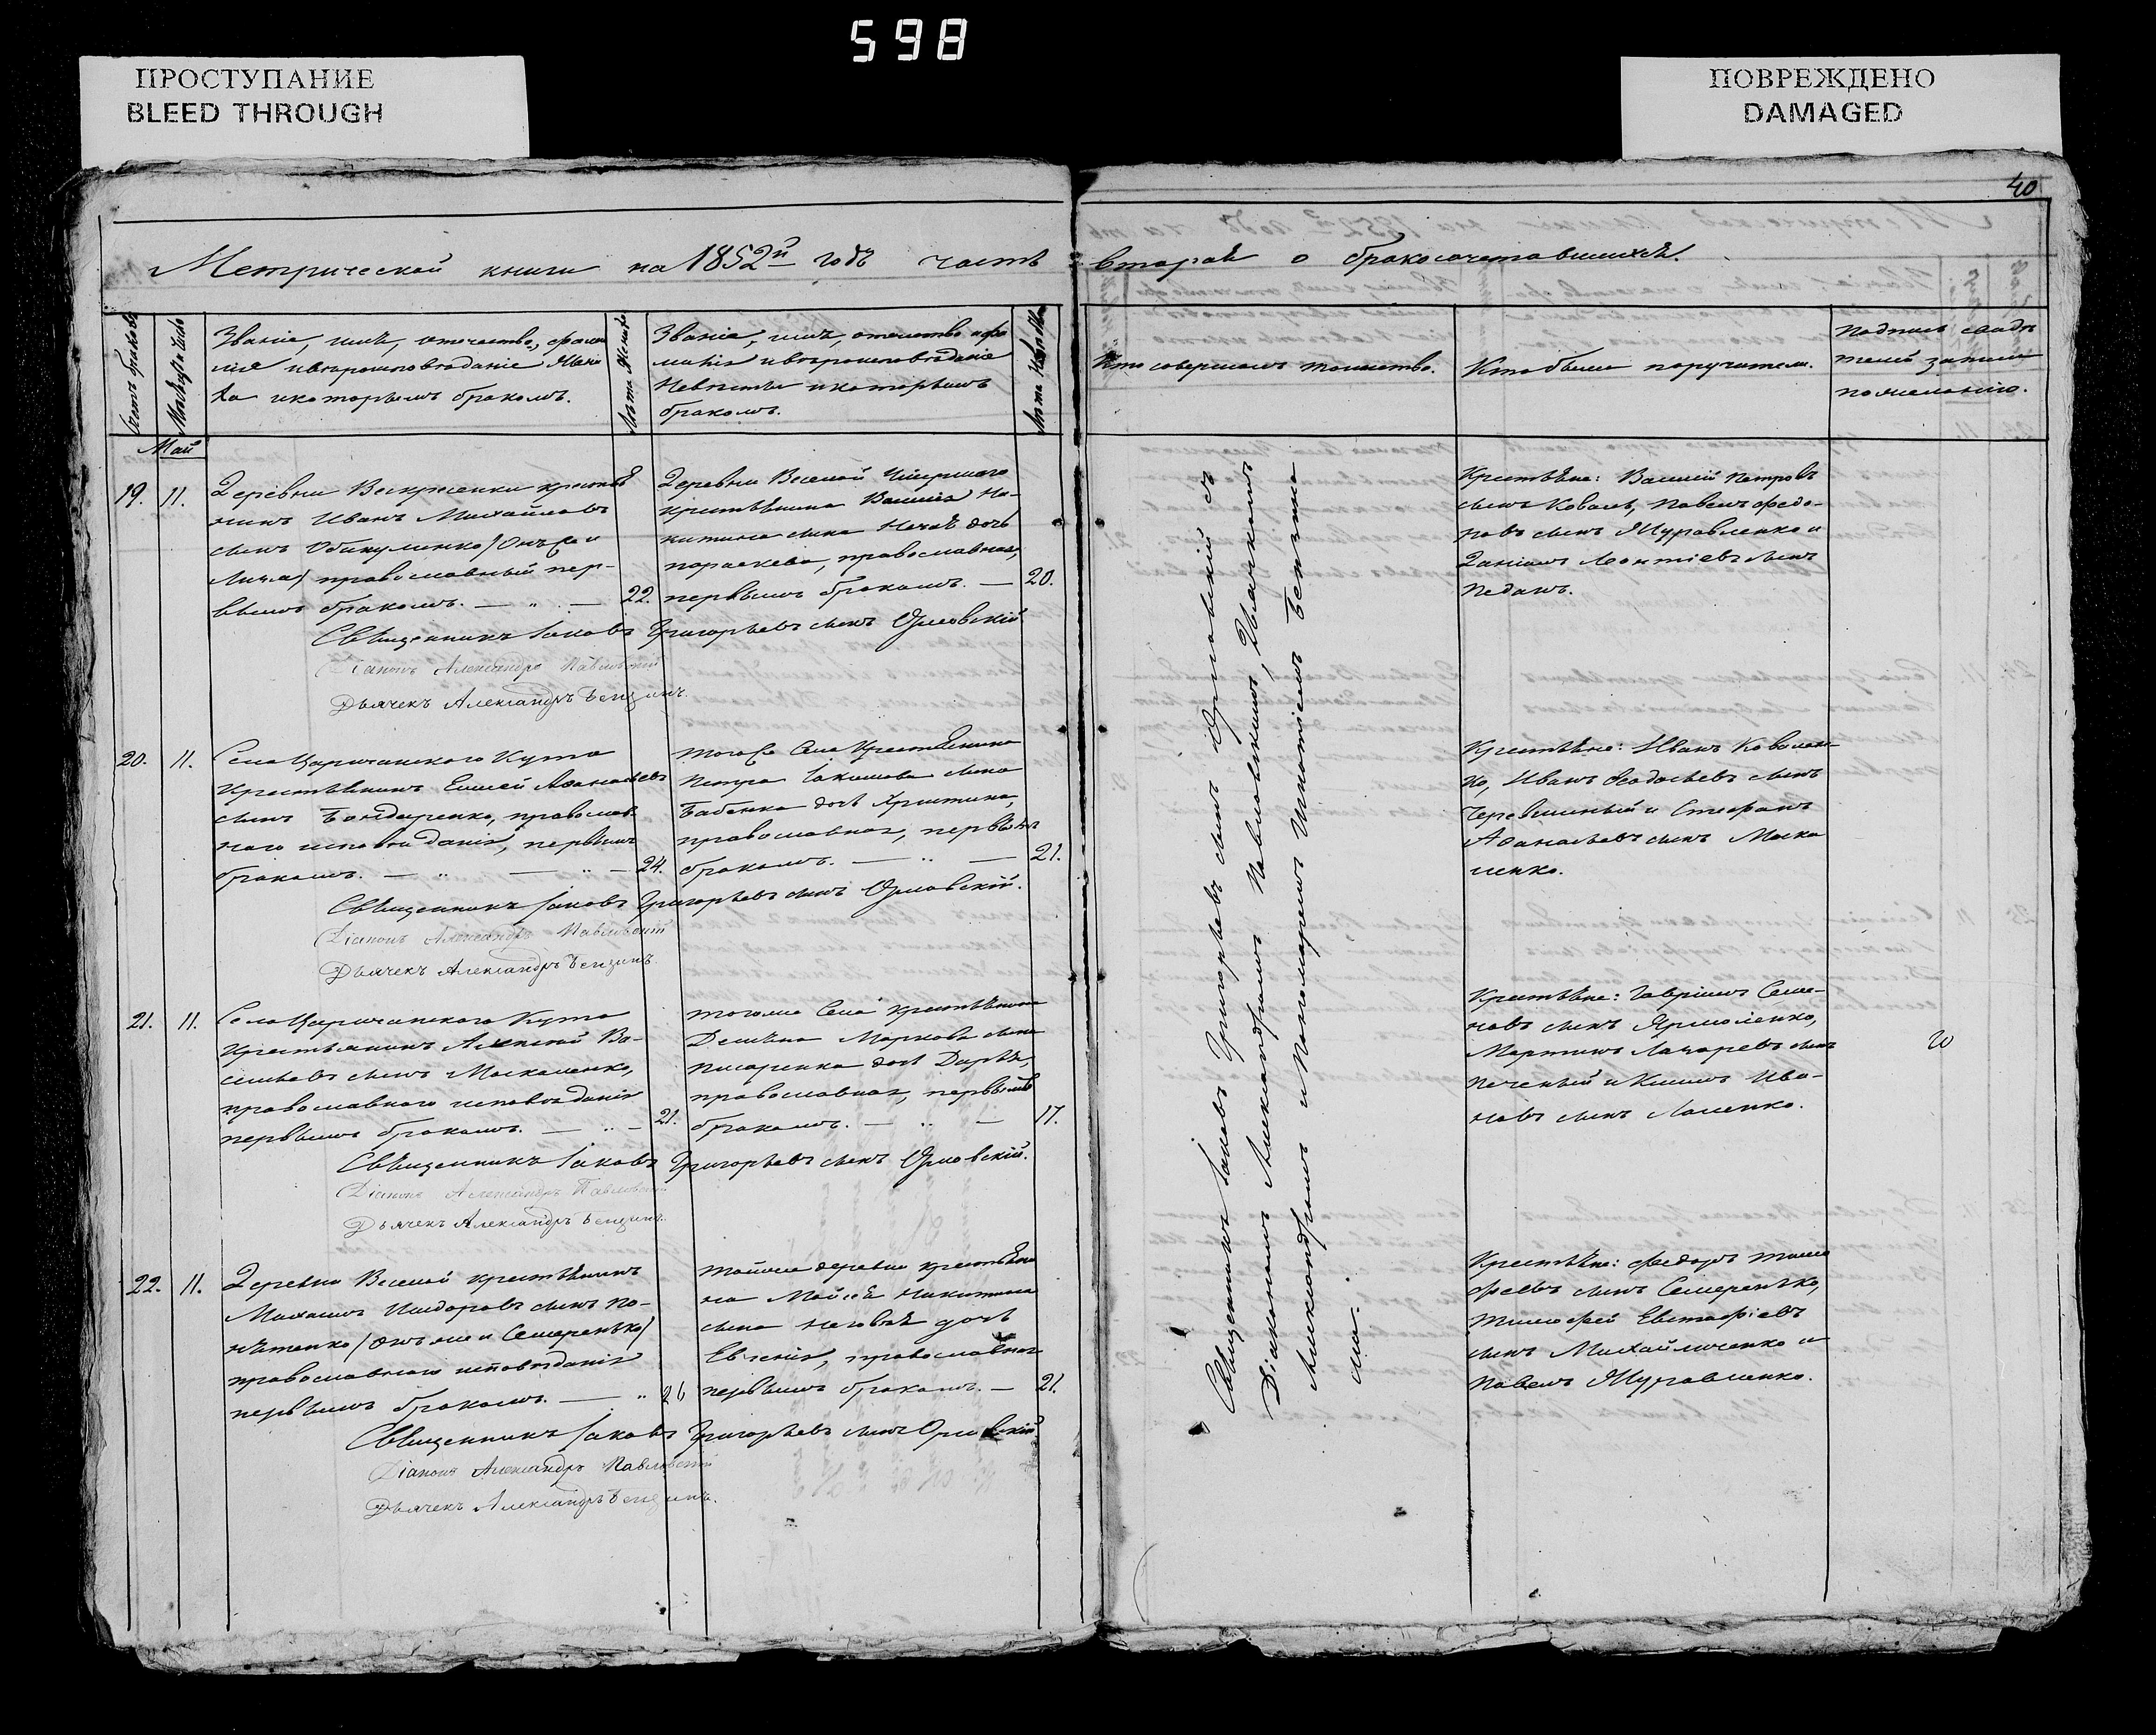 598
ПРОСТУПАНИЕ
BLEED THROUGH
ПОВРЕЖДЕНО
DAMAGED
40
Метрической книги на 1852й годъ часть вторая о бракосочетавшихся.
Счетъ браковъ
Месяцъ и число
Званіе, имя, отечество, фами
лія и вѣроисповѣданіе Жени
ха и которымъ бракомъ.
Лѣта Жениха
Званіе, имя, отечество и фа
милія и вѣроисповѣданіе
Невѣсты и которымъ
бракомъ.
Лѣта Невѣсты
Кто совершалъ таинство.
Кто были поручители.
Подпись свидѣ
телей записи
по желанію.
Май
19. 11.
Деревни Воскресенки крестья
нинъ Иванъ Михайловъ
сынъ
православный пер-
вымъ бракомъ. — „ — 22.
Деревни Веселой
крестьянина Ни-
китина сына дочь
параскева, православная,
первымъ бракомъ. — 20.
Крестьяне: Василій Петровъ
сынъ Коваль, Павелъ Федо-
ровъ сынъ Журавленко и
Даніилъ Леонтіевъ сынъ
Педашъ.
Священникъ Іаковъ Григорьевъ сынъ Орловскій
Діаконъ Александръ Павловскій
Дьячекъ Александръ Бензинъ.
20. 11.
Села Царичанского Кута
Крестьянинъ Елисей Афанасьевъ
сынъ Бондаренко, православ-
наго исповѣданія, первымъ
бракомъ. — „ — „ — 24.
Тогожъ Села Крестьянина
Петра Іакимова сына
Бабенка дочь Христина,
православная, первымъ
бракомъ. — „ — 21.
Крестьяне: Иванъ Ковален-
ко, Иванъ Феодосьевъ сынъ
и Стефанъ
Афанасьевъ сынъ Моска
ленко.
Священникъ Іаковъ Григорьевъ сынъ Орловскій.
Діаконъ Александръ Павловскій
Дьячекъ Александръ Бензинъ.
21. 11.
Села Царичанского Кута
Крестьянинъ Алексей Ва-
сильевъ сынъ Москаленко,
православнаго исповѣданія
первымъ бракомъ. — „ — 21.
Тогоже Села крестьянина
Демьяна Маркова сына
Писаренка дочь Дарья,
православная, первымъ
бракомъ. — „ — 17.
Крестьяне: Гавріилъ Семе-
новъ сынъ Ярмоленко,
Мартинъ Лазаревъ сынъ
Печеный и Климъ Ива-
новъ сынъ Лоленко.
Священникъ Іаковъ Григорьевъ сынъ Орловскій.
Діаконъ Александръ Павловскій
Дьячекъ Александръ Бензинъ.
22. 11.
Деревни Веселой крестьянинъ
Михаилъ Исидоровъ сынъ По-
нятенко (онъ же и Семеренько)
православнаго исповѣданія
первымъ бракомъ. — „ 26
Тойже деревни крестьяни
на Мойсея Никитина
сына дочь
Евгенія, православная
первымъ бракомъ. — 21.
Крестьяне: Федоръ Тимо
феевъ сынъ Семеренько,
Тимофей Евстафіевъ
сынъ Михайличенко и
Павелъ Журавленко.
Священникъ Іаковъ Григорьевъ сынъ Орловскій
Діаконъ Александръ Павловскій
Дьячекъ Александръ Бензинъ.
Священникъ Іаковъ Григорьевъ сынъ Орловскій съ
Діакономъ Александромъ Павловскимъ, Дьячкомъ
Александромъ и Пономаремъ Игнатіемъ Бензина
ми.